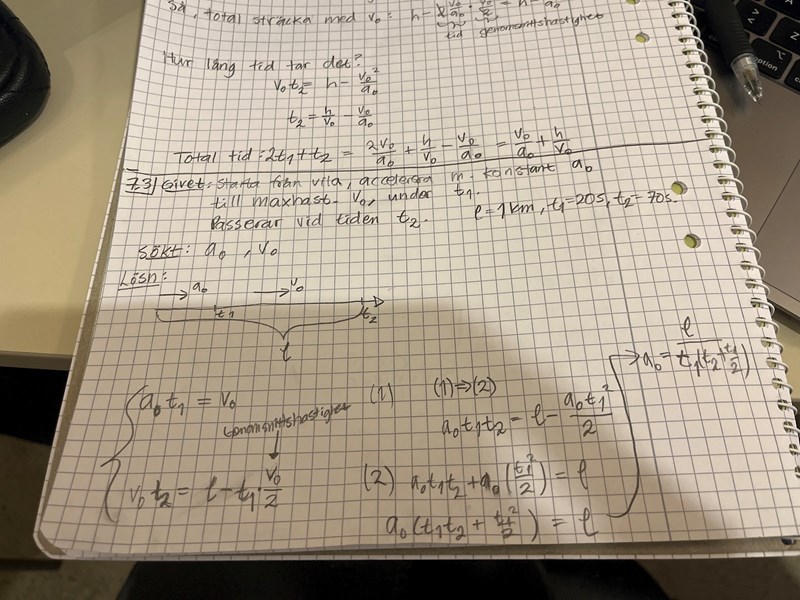 Så, total sträcka med v₀: h - 2 v₀/a₀ · v₀/2 = h - v₀²/a₀
tid genomsnittshastighet
Hur lång tid tar det?
v₀t₂ = h - v₀²/a₀
t₂ = h/v₀ - v₀/a₀
Total tid: 2t₁ + t₂ = 2v₀/a₀ + h/v₀ - v₀/a₀ = v₀/a₀ + h/v₀
7.3) Givet: Starta från vila, accelerera m. konstant a₀
till maxhast. v₀, under t₁.
Passerar vid tiden t₂. l = 1 km, t₁ = 20s, t₂ = 70s.
Sökt: a₀, v₀
Lösn:
a₀ v₀
t₁ t₂
l
a₀t₁ = v₀ (1)
Genomsnittshastighet
v₀t₂ = l - t₁ · v₀/2 (2)
(1)⇒(2)
a₀t₁t₂ = l - a₀t₁²/2
a₀t₁t₂ + a₀(t₁²/2) = l
a₀(t₁t₂ + t₁²/2) = l
a₀ = l/t₁(t₂ + t₁/2)
option